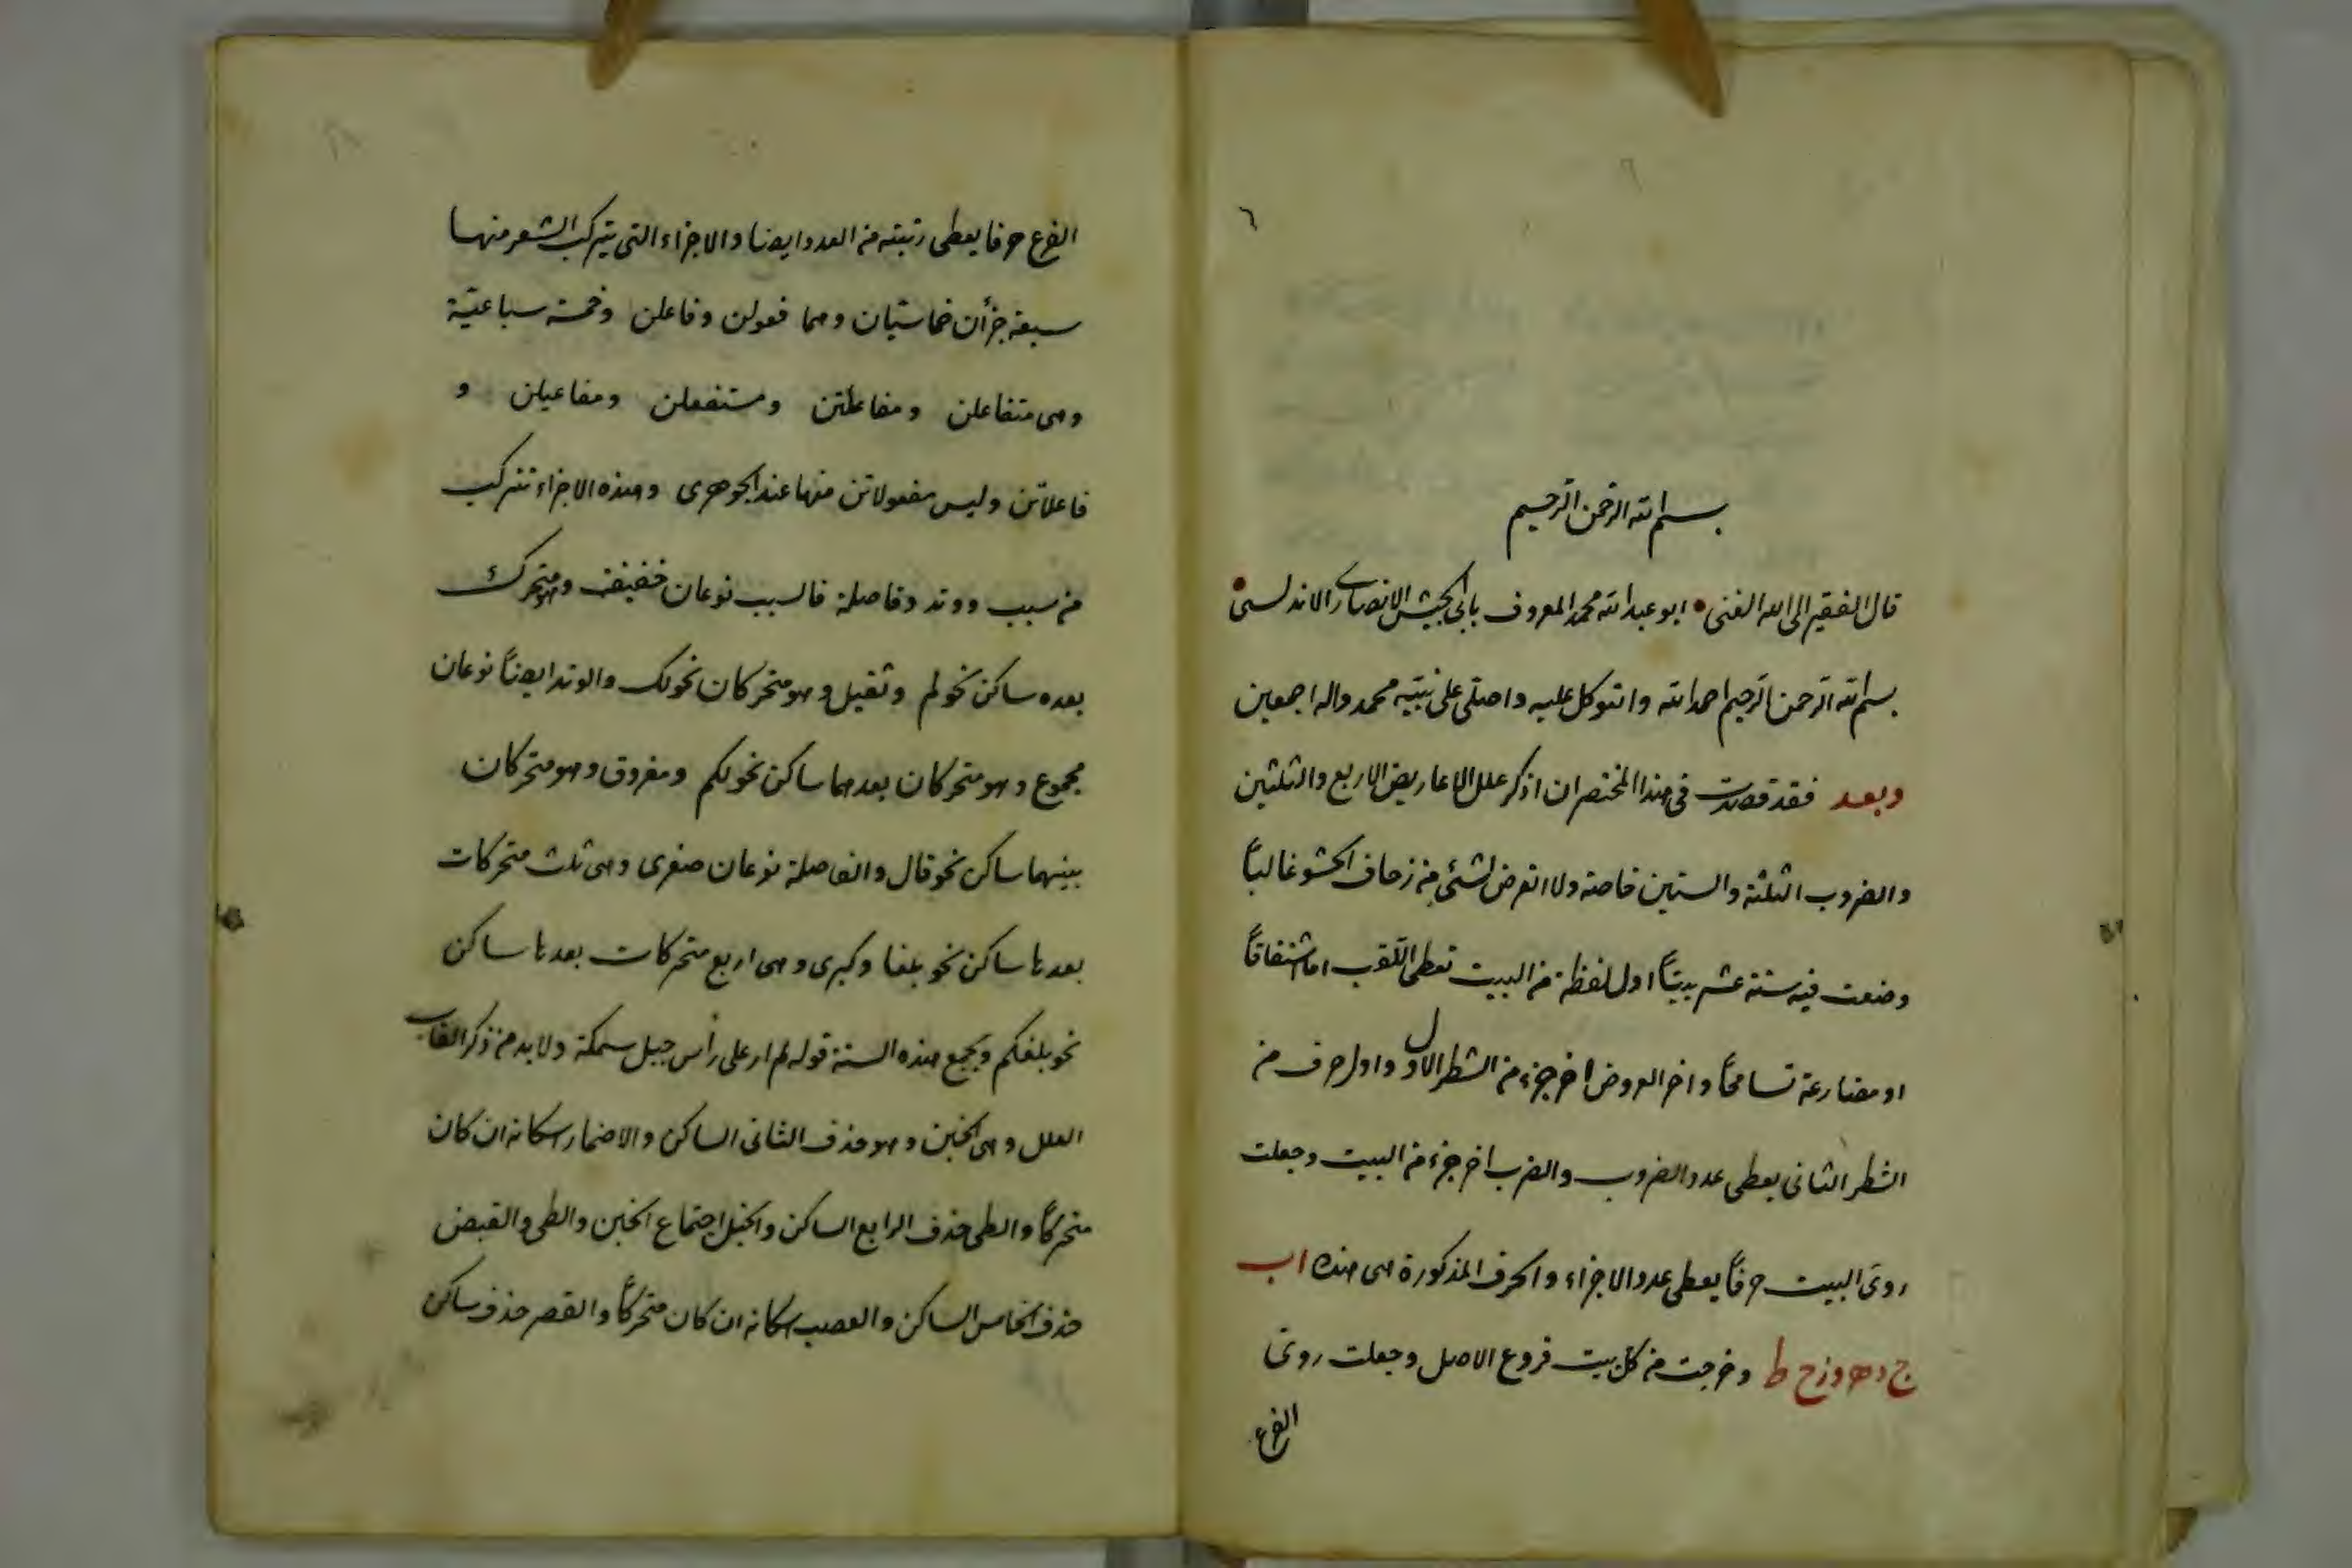 ٦
بسم الله الرحمن الرحيم
قال الفقير الى الله الغنى • ابو عبد الله محمد المعروف بابى الجيش الانصارى الاندلسى •
بسم الله الرحمن الرحيم احمد الله واتوكل عليه واصلى على نبيّه محمد واله اجمعين
وبعد فقد قصدت فى هذا المختصر ان اذكر علل الاعاريض الاربع والثلثين
والضروب الثلثة والستين خاصة ولا اتعرض لشئ من زحاف الحشو غالباً
وضعت فيه ستة عشر بيتاً اول لفظة من البيت تعطى اللّقب اما اشتقاقاً
او مضارعة تسامحاً واخر العروض اخر جزء من الشطر الاول واول حرف من
الشطر الثانى يعطى عدد الضروب والضرب اخر جزء من البيت وجعلت
روىّ البيت حرفاً يعطى عدد الاجزاء والحرف المذكورة هى هذه ا ب
ج د ه و ز ح ط وخرجت من كل بيت فروع الاصل وجعلت روىّ
الفرع
الفرع حرفا يعطى رتبته من العدد ايضا والاجزاء التى يتركب الشعر منها
سبعة جزأن خماسيّان وهما فعولن وفاعلن وخمسة سباعيّة
وهى متفاعلن ومفاعلتن ومستفعلن ومفاعيلن و
فاعلاتن وليس مفعولاتن منها عند الجوهرى وهذه الاجزاء تتركب
من سبب ووتد وفاصلة فالسبب نوعان خفيف وهو متحرك
بعده ساكن نحو لم وثقيل وهو متحركان نحو لك والوتد ايضاً نوعان
مجموع وهو متحركان بعدهما ساكن نحو لكم ومفروق وهو متحركان
بينهما ساكن نحو قال والفاصلة نوعان صغرى وهى ثلث متحركات
بعدها ساكن نحو بلغا وكبرى وهى اربع متحركات بعدها ساكن
نحو بلغكم ويجمع هذه الستة قوله لم ار على رأس جبل سمكة ولا بد من ذكر القاب
العلل وهى الخبن وهو حذف الثانى الساكن والاضمار اسكانه ان كان
متحركاً والطى حذف الرابع الساكن والخبل اجتماع الخبن والطى والقبض
حذف الخامس الساكن والعصب اسكانه ان كان متحركاً والقصر حذف ساكن